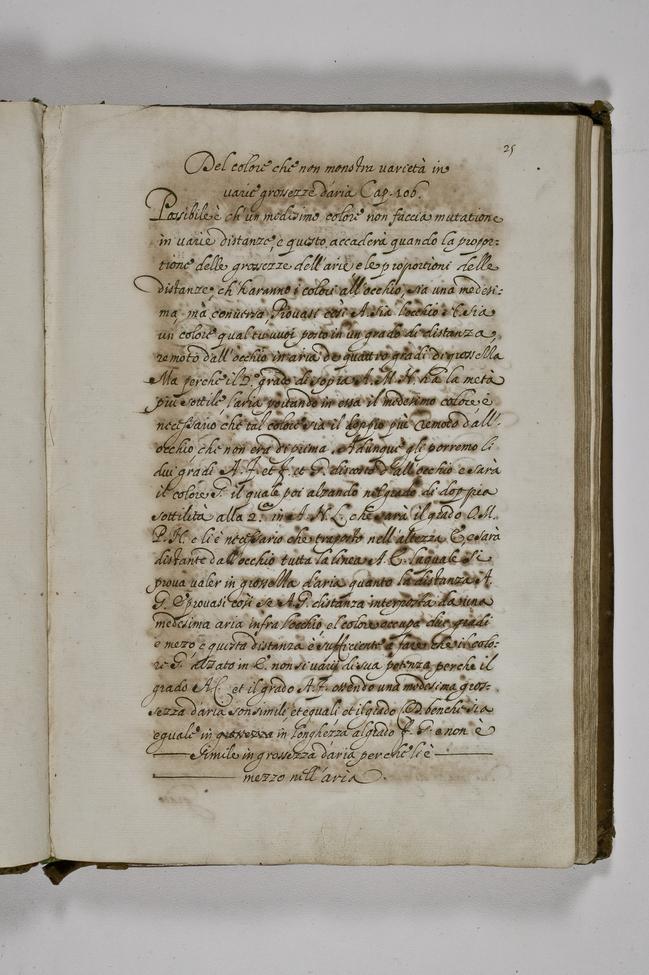 25
Del colore che non monstra varietà in
varie grossezze d'aria Cap. 106.
Possibile è ch'un medesimo colore non faccia mutatione
in varie distanze, e questo accaderà quando la propor=
tione delle grossezze dell'arie e le proportioni delle
distanze, ch'haranno i colori all'occhio, sia una medesi=
ma, mà conversa, Provasi così A. sia l'occhio e C. sia
un colore qual tu vuoi posto in un grado di distanza,
remoto dall'occhio in aria de quattro gradi di grossezza
Ma perche il 2.º grado di sopra A. M. N. hà la metà
più sottile l'aria portando in essa il medesimo colore è
necessario che tal colore sia il doppio più remoto dall'
occhio, che non era di prima. Adunque gli porremo li
dui gradi A. F. et F. et G. discosto dall'occhio e sarà
il colore G. il quale poi alzando nel grado di doppia
sottilità alla 2.ª in A. N. L. che sarà il grado O. M.
P. H. e li è necessario che traposto nell'altezza E. e sarà
distante dall'occhio tutta la linea A. E. laquale si
prova valer in grossezza d'aria quanto la distanza A.
G. E provasi così se A. G. distanza interposta da una
medesima aria infra l'occhio, e'l colore occupa due gradi
e mezo e questa distanza è sufficiente à fare che il colo=
re G. alzato in E. non si varij di sua potenza perche il
grado A. C. et il grado A. F. essendo una medesima gros=
sezza d'aria son simili et equali et il grado C. D. benche sia
equale in longhezza al grado F. G. e non è
simile in grossezza d'aria perche li è
mezzo nell'aria.